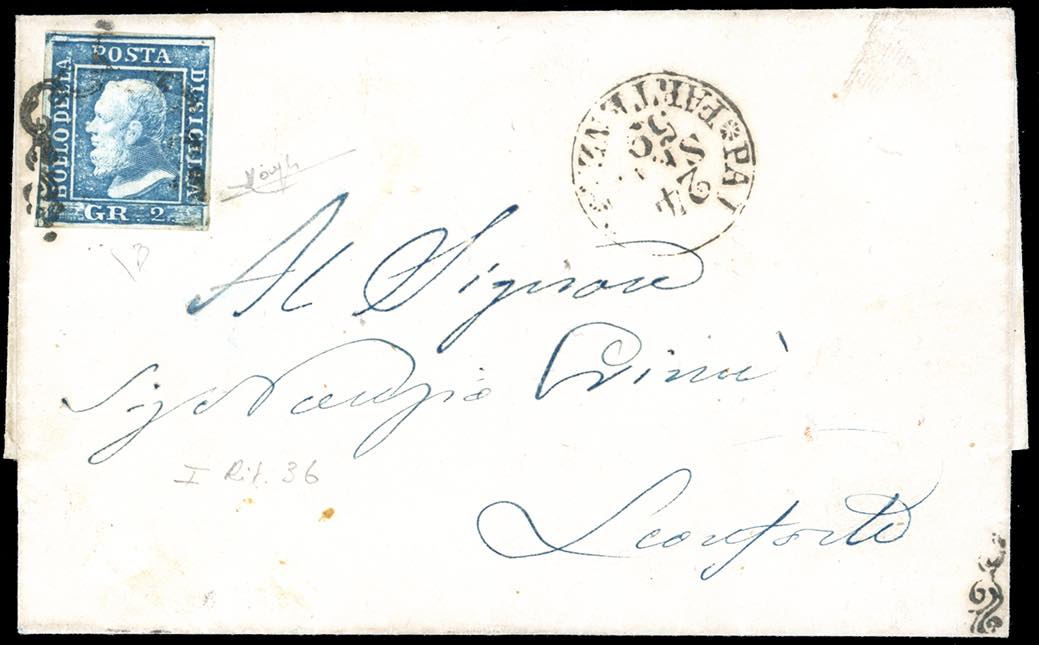 BOLLO DELLA POSTA DI SICILIA
GR 2
PA * PARTENZA *
24
S
Al Signore
Sig Nunzio Crimi
Leonforte
I Rit. 36